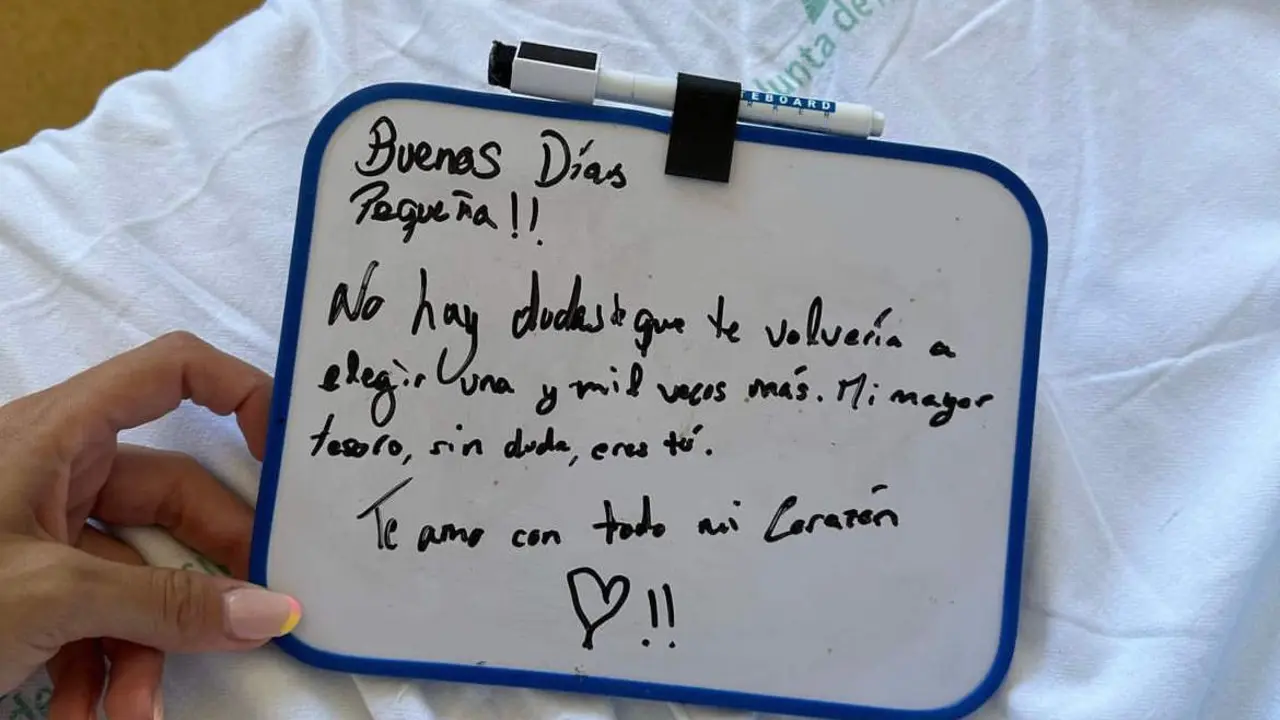 Junta de
TEBOARD
Buenas Días
Pequeña!!
No hay dudas de que te volvería a
elegir una y mil veces más. Mi mayor
tesoro, sin duda, eres tú.
Te amo con todo mi Corazón
!!